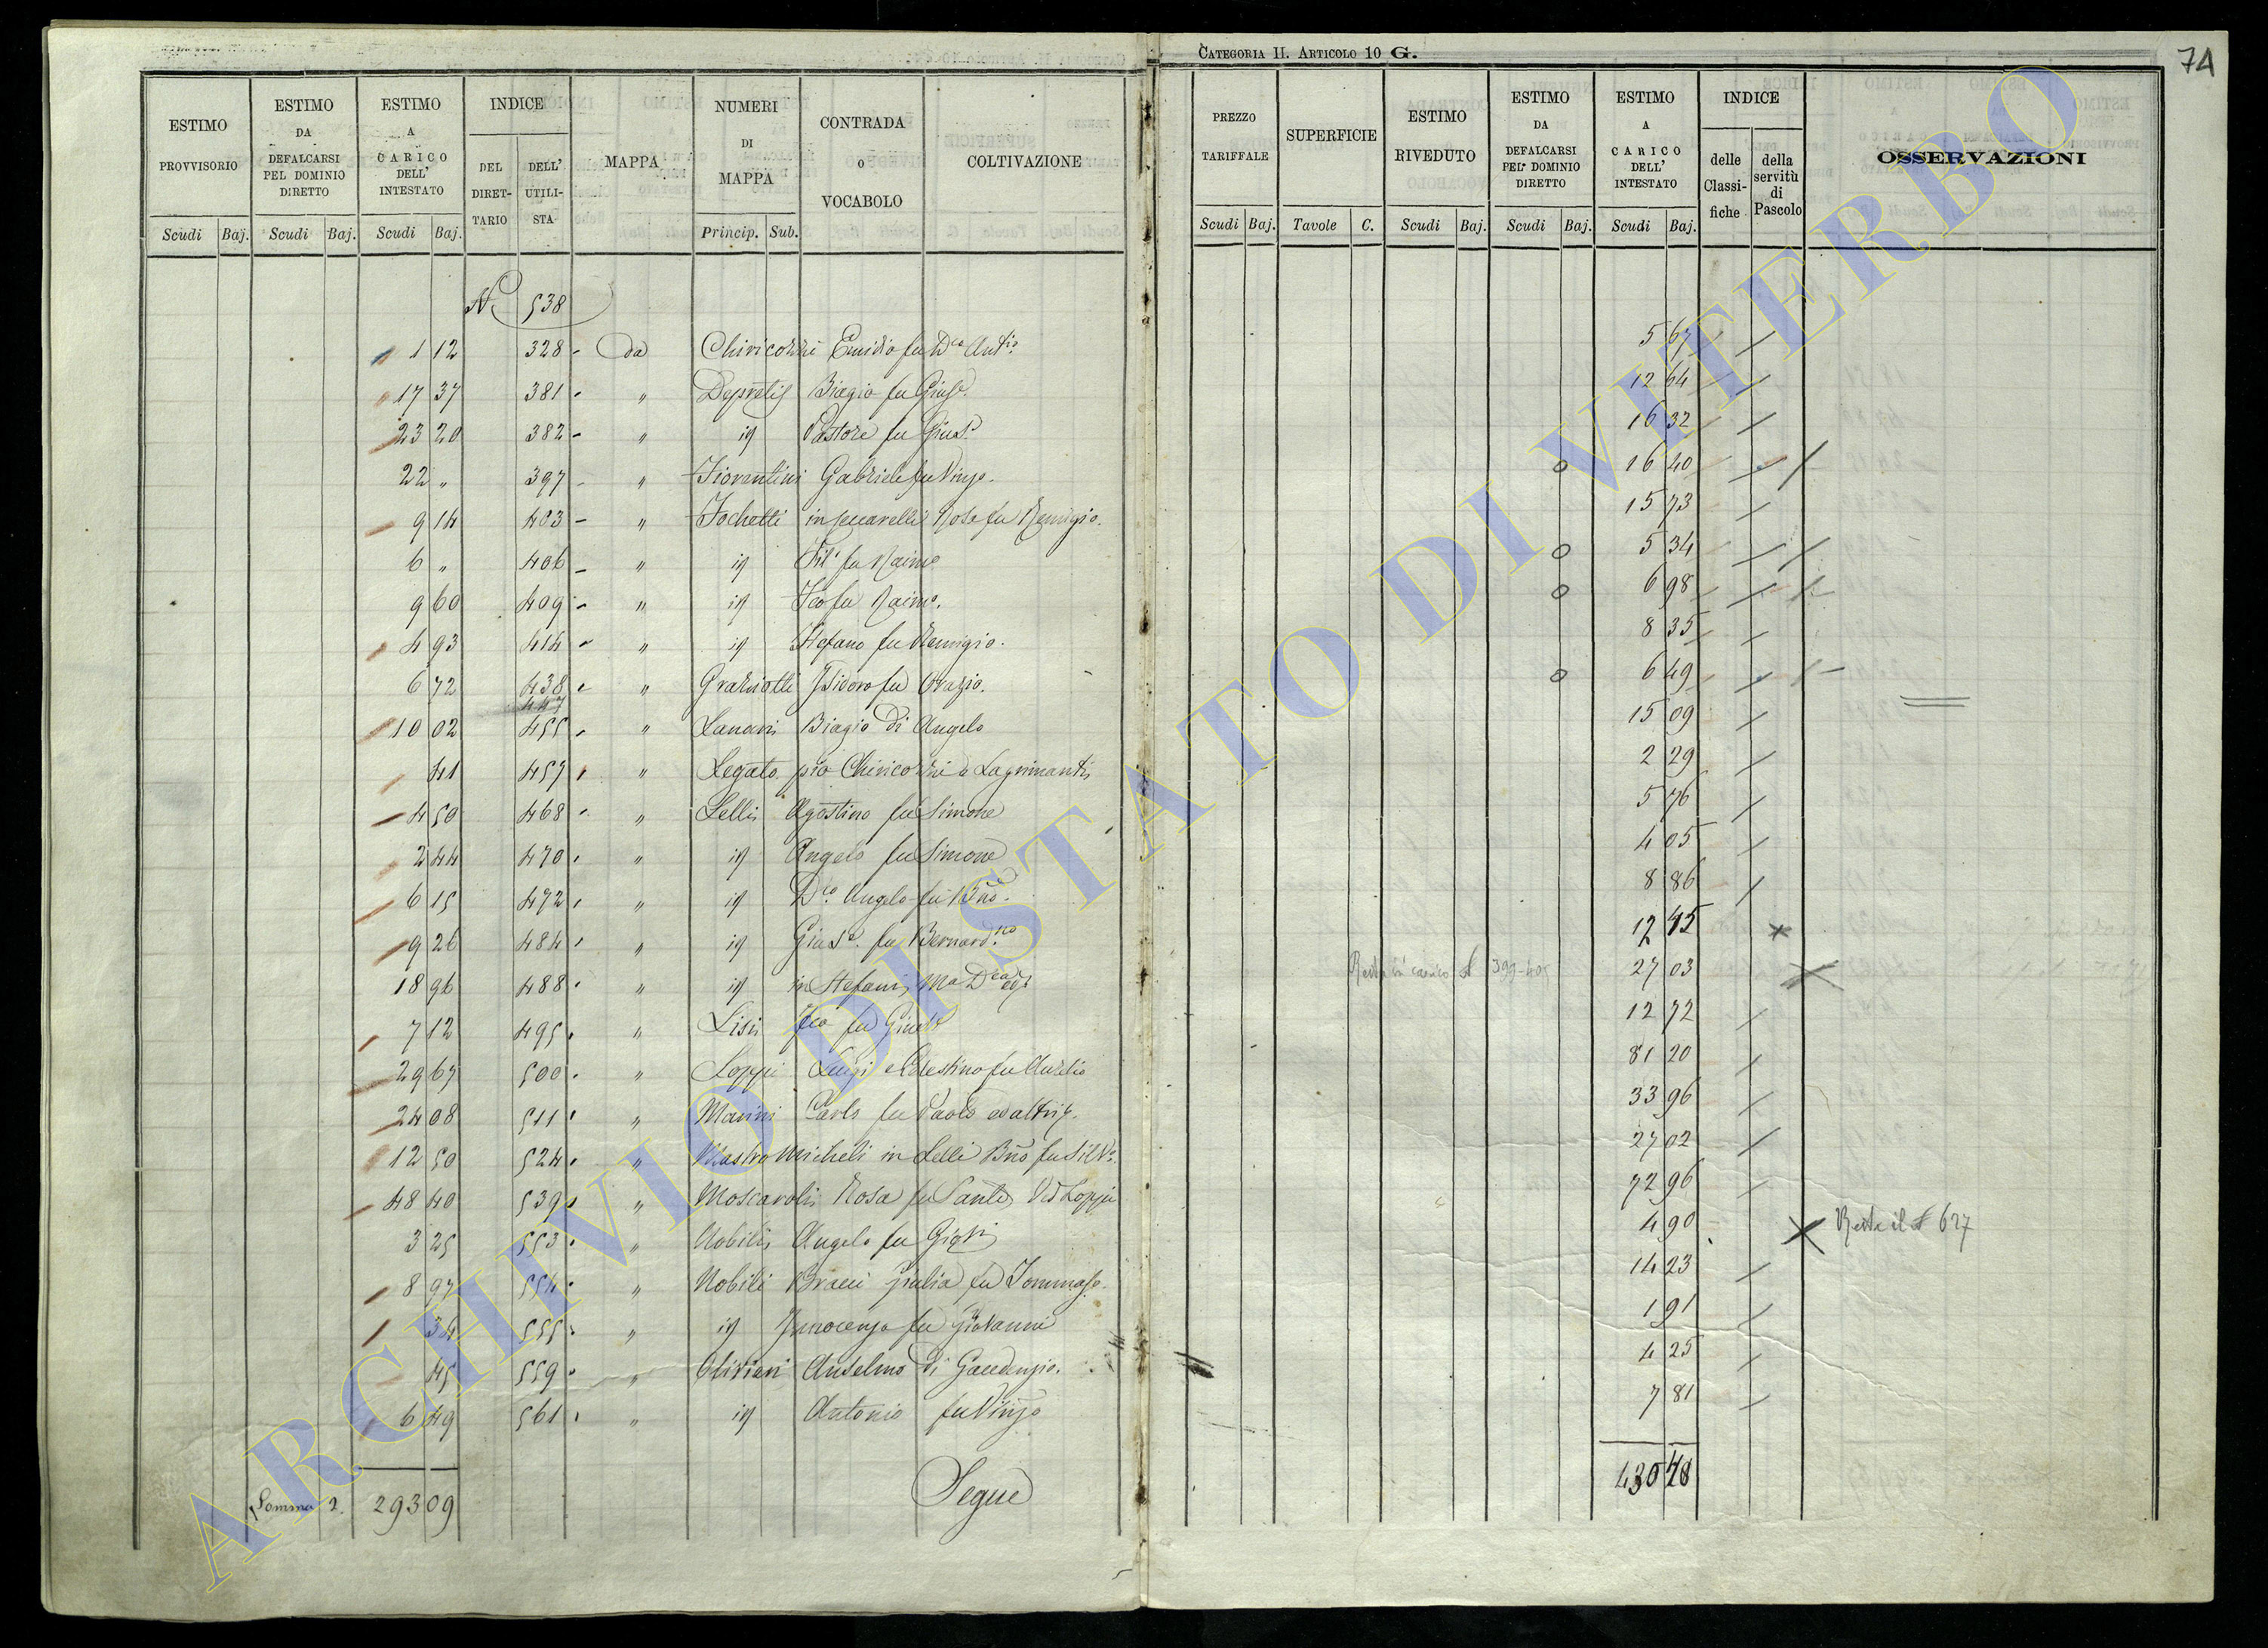 CATEGORIA II. ARTICOLO 10 G.
74
ESTIMO PROVVISORIO
ESTIMO DA DEFALCARSI PEL DOMINIO DIRETTO
ESTIMO A CARICO DELL' INTESTATO
INDICE
DEL DIRETTARIO
DELL' UTILISTA
MAPPA
NUMERI DI MAPPA
CONTRADA o VOCABOLO
COLTIVAZIONE
Scudi Baj. Scudi Baj. Scudi Baj. Princip. Sub.
PREZZO TARIFFALE
SUPERFICIE
ESTIMO RIVEDUTO
ESTIMO DA DEFALCARSI PEL DOMINIO DIRETTO
ESTIMO A CARICO DELL' INTESTATO
INDICE
delle Classifiche
della servitù di Pascolo
OSSERVAZIONI
Scudi Baj. Tavole C. Scudi Baj. Scudi Baj. Scudi Baj.
N 538
1 12 328 - da Chiricozzi Emidio fu Dco Antio 5 67
17 37 381 - " Depretis Biagio fu Giuse. 12 64
23 20 382 - " id Pastore fu Gius. 16 32
22 " 397 - " Fiorentini Gabriele fu Vinzo. 0 16 40
9 14 403 - " Fochetti in Ceccarelli Rosa fu Remigio. 15 73
6 " 406 - " id Fil. fu Raimo 0 5 34
9 60 409 - " id Fco fu Raimo. 0 6 98
4 93 414 - " id Stefano fu Remigio. 8 35
6 72 438 " Graziotti Isidoro fu Orazio. 0 6 49
447
10 02 455 - " Lanari Biagio di Angelo 15 09
41 457 " Legato pio Chiricozzi e Lagrimanti 2 29
4 50 468 " Lelli Agostino fu Simone 5 76
2 44 470 " id Angelo fu Simone 4 05
6 15 472 " id Dco Angelo fu Bño. 8 86
9 26 484 " id Giuse. fu Bernardno 12 45
18 96 488 " id in Stefani Ma Dca 27 03
7 12 495 " Lisi Fco fu 12 72
29 67 500 " Loppi Luigi e Celestino fu Aurelio 81 20
24 08 511 " Marini Carlo fu Paolo ed altri 33 96
12 50 524 " Mastro Micheli in Lelli Bño fu Silvo. 27 02
48 40 539 " Moscaroli Rosa fu Sante Vd Loppi 72 96
3 25 553 " Nobili Angelo fu 4 90 Resta il N 627
8 97 554 " Nobili Braci Giulia fu Tommaso. 14 23
34 555 " id Innocenza fu Giovanni 1 91
45 559 " Olivieri Anselmo di Gaudenzio. 4 25
6 49 561 " id Antonio fu Vinzo 7 81
Somma 2. 293 09 Segue 430 48
ARCHIVIO DI STATO DI VITERBO